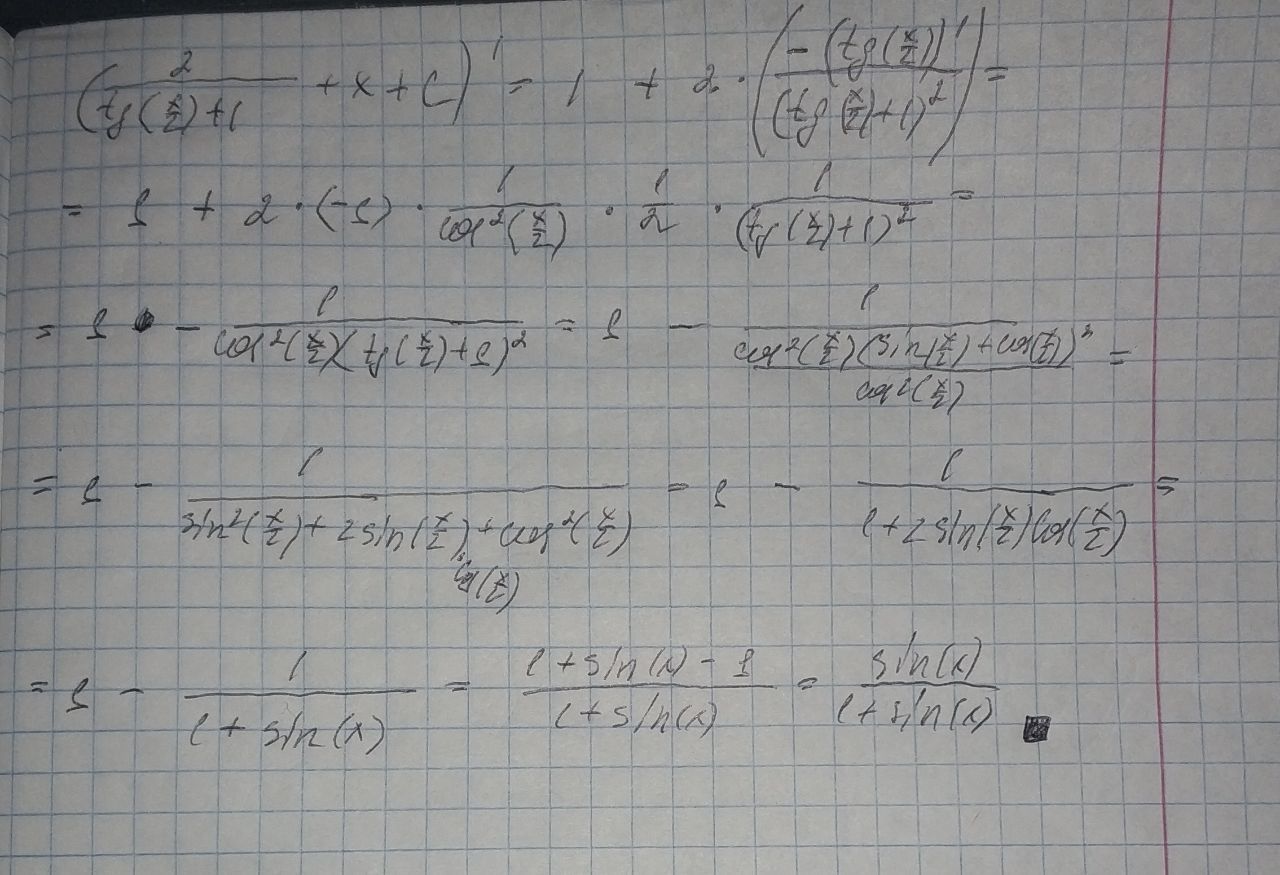 (2/(tg(x/2)+1) + x + C)' = 1 + 2·(-(tg(x/2))'/(tg(x/2)+1)^2) =
= 1 + 2·(-1)·1/cos^2(x/2)·1/2·1/(tg(x/2)+1)^2 =
= 1 - 1/(cos^2(x/2)(tg(x/2)+1)^2) = 1 - 1/((cos^2(x/2)(sin(x/2)+cos(x/2))^2)/cos^2(x/2)) =
= 1 - 1/(sin^2(x/2)+2sin(x/2)·cos(x/2)+cos^2(x/2)) = 1 - 1/(1+2sin(x/2)cos(x/2)) =
= 1 - 1/(1+sin(x)) = (1+sin(x)-1)/(1+sin(x)) = sin(x)/(1+sin(x)) ■